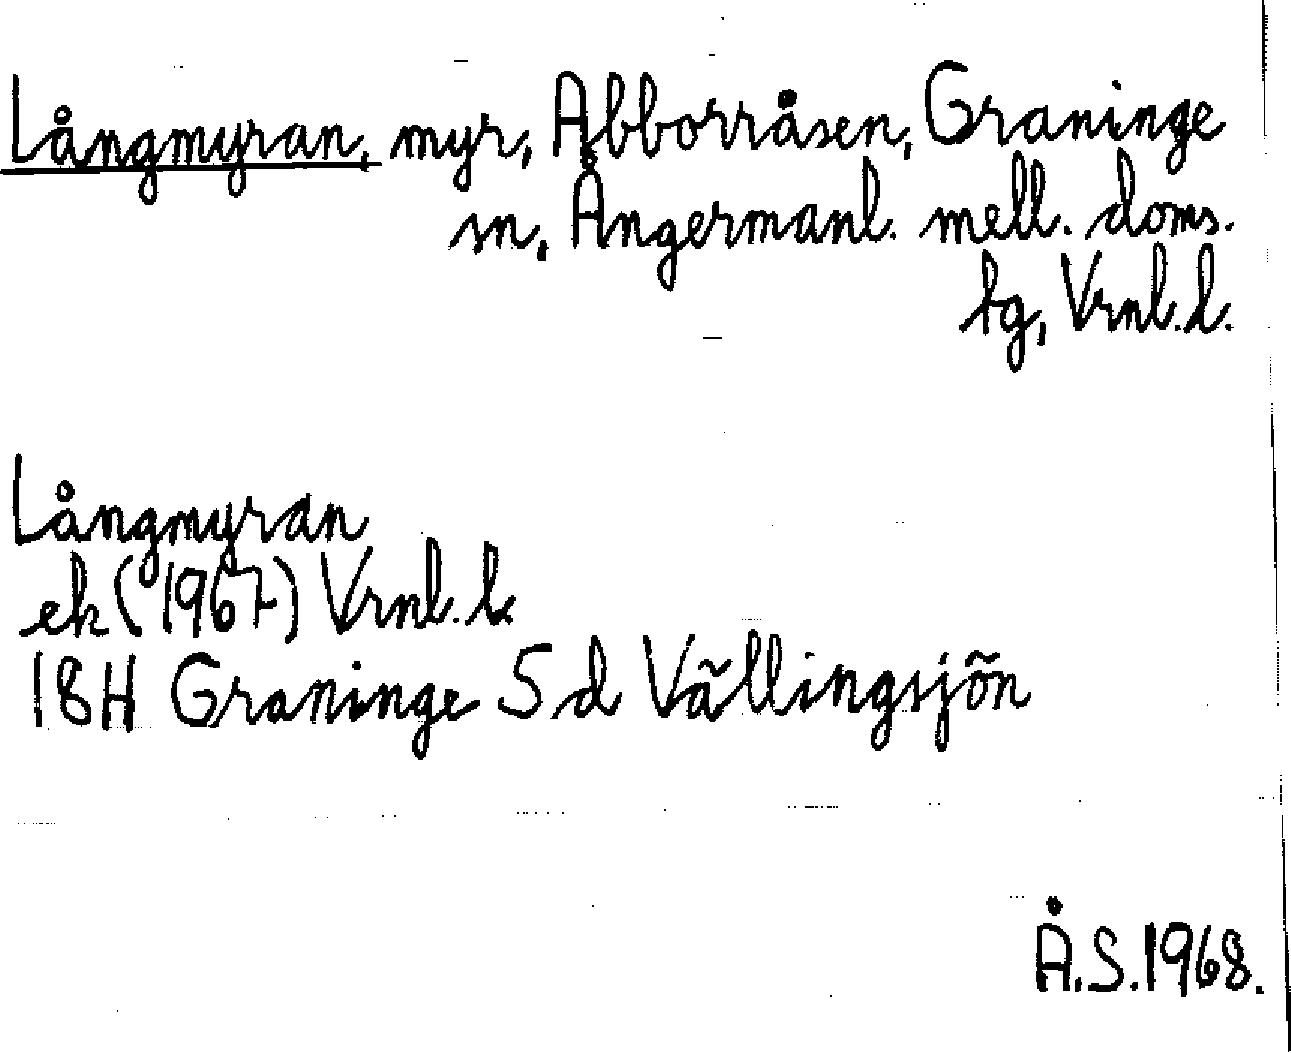 Långmyran, myr, Abborråsen, Graninge
sn, Ångermanl. mell. doms.
tg, Vrnl.l.
Långmyran
ek (1967) Vrnl. l.
18H Graninge S d Vällingsjön
Å.S.1968.